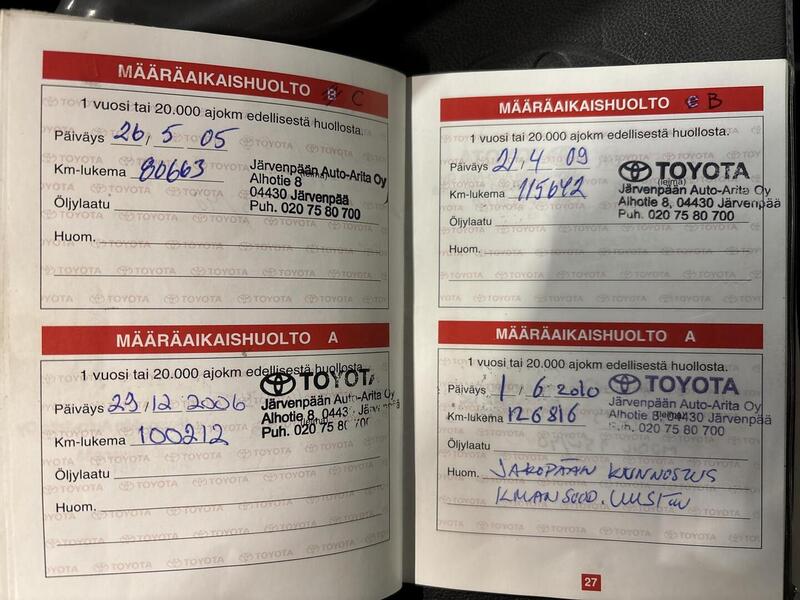 MÄÄRÄAIKAISHUOLTO C
1 vuosi tai 20.000 ajokm edellisestä huollosta.
Päiväys 26/5 05
Km-lukema 80663
Järvenpään Auto-Arita Oy
Alhotie 8
04430 Järvenpää
Puh. 020 75 80 700
Öljylaatu
Huom.
MÄÄRÄAIKAISHUOLTO A
1 vuosi tai 20.000 ajokm edellisestä huollosta.
TOYOTA
Päiväys 29/12 2006
Järvenpään Auto-Arita Oy
Alhotie 8, 0443 Järvenpää
Km-lukema 100212
Puh. 020 75 80 700
Öljylaatu
Huom.
MÄÄRÄAIKAISHUOLTO B
1 vuosi tai 20.000 ajokm edellisestä huollosta.
Päiväys 21/4 09
TOYOTA
(leima)
Km-lukema 115642
Järvenpään Auto-Arita Oy
Alhotie 8, 04430 Järvenpää
Puh. 020 75 80 700
Öljylaatu
Huom.
MÄÄRÄAIKAISHUOLTO A
1 vuosi tai 20.000 ajokm edellisestä huollosta.
TOYOTA
Päiväys 1/6 2010
Järvenpään Auto-Arita Oy
Km-lukema 126816
Alhotie 8, 04430 Järvenpää
Puh. 020 75 80 700
Öljylaatu
Huom. JAKOPÄÄN KUNNOSTUS
ILMANSUOD. UUSITTU
27